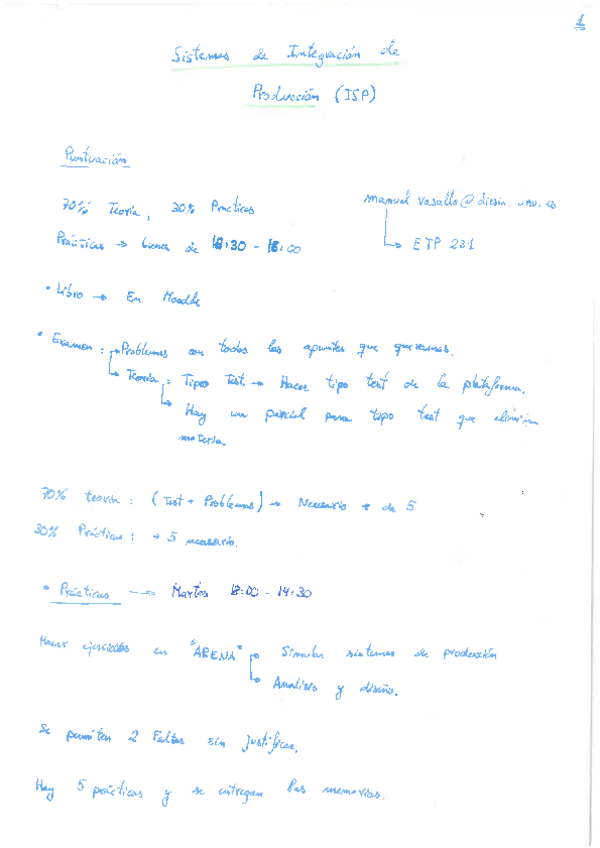 1
Sistemas de Integración de
Producción (ISP)
Puntuación
70% Teoría, 30% Practicas
manuel.vasallo@diesia.
ETP 231
Prácticas → de 18:30 -
• Libro → En Moodle
• Examen: → Problemas con todos los apuntes que queramos.
→ Teoría: Tipo Test → Hacer tipo test de la plataforma.
→ Hay un parcial para tipo test que elimina
materia.
70% teoría: (Test + Problemas) → Necesario + de 5
30% Prácticas: + 5 necesario.
• Prácticas → Martes - 14:30
Hacer ejercicios en "ARENA" → Simular sistemas de producción
→ Analisis y diseño.
Se permiten 2 Faltas sin justificar.
Hay 5 prácticas y se entregan las memorias.